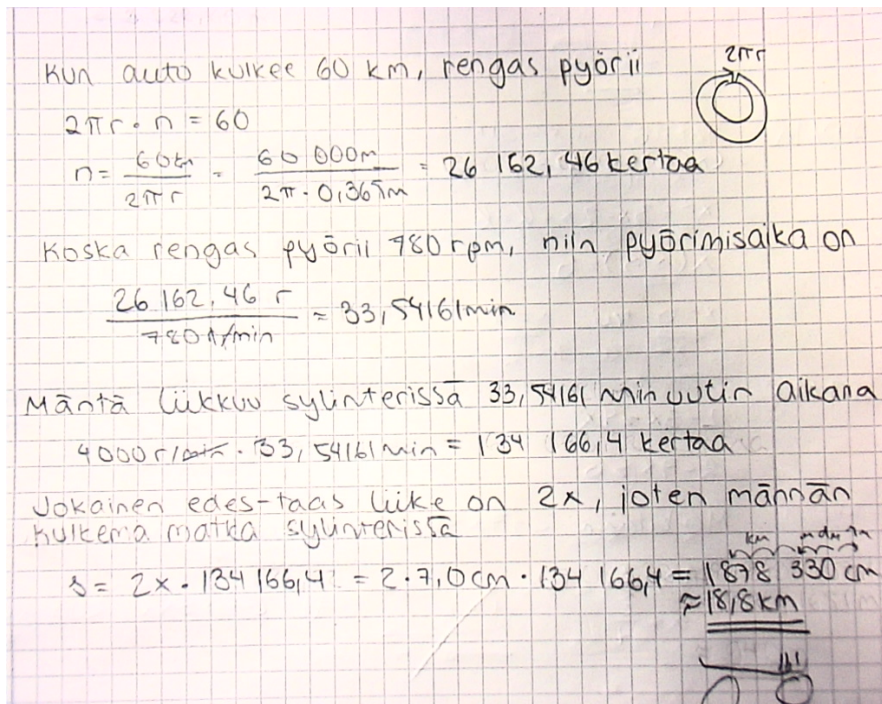 Kun auto kulkee 60 km, rengas pyörii
2πr
2πr · n = 60
n = 60km / 2πr = 60 000m / 2π · 0,365m = 26 162,46 kertaa
Koska rengas pyörii 780 rpm, niin pyörimisaika on
26 162,46 r / 780 r/min = 33,54161min
Mäntä liikkuu sylinterissä 33,54161 minuutin aikana
4000 r/min · 33,54161 min = 134 166,4 kertaa
Jokainen edes-taas liike on 2x, joten männän
kulkema matka sylinterissä
km m dm cm
s = 2x · 134 166,4 = 2 · 7,0cm · 134 166,4 = 1 878 330 cm
≈ 18,8 km